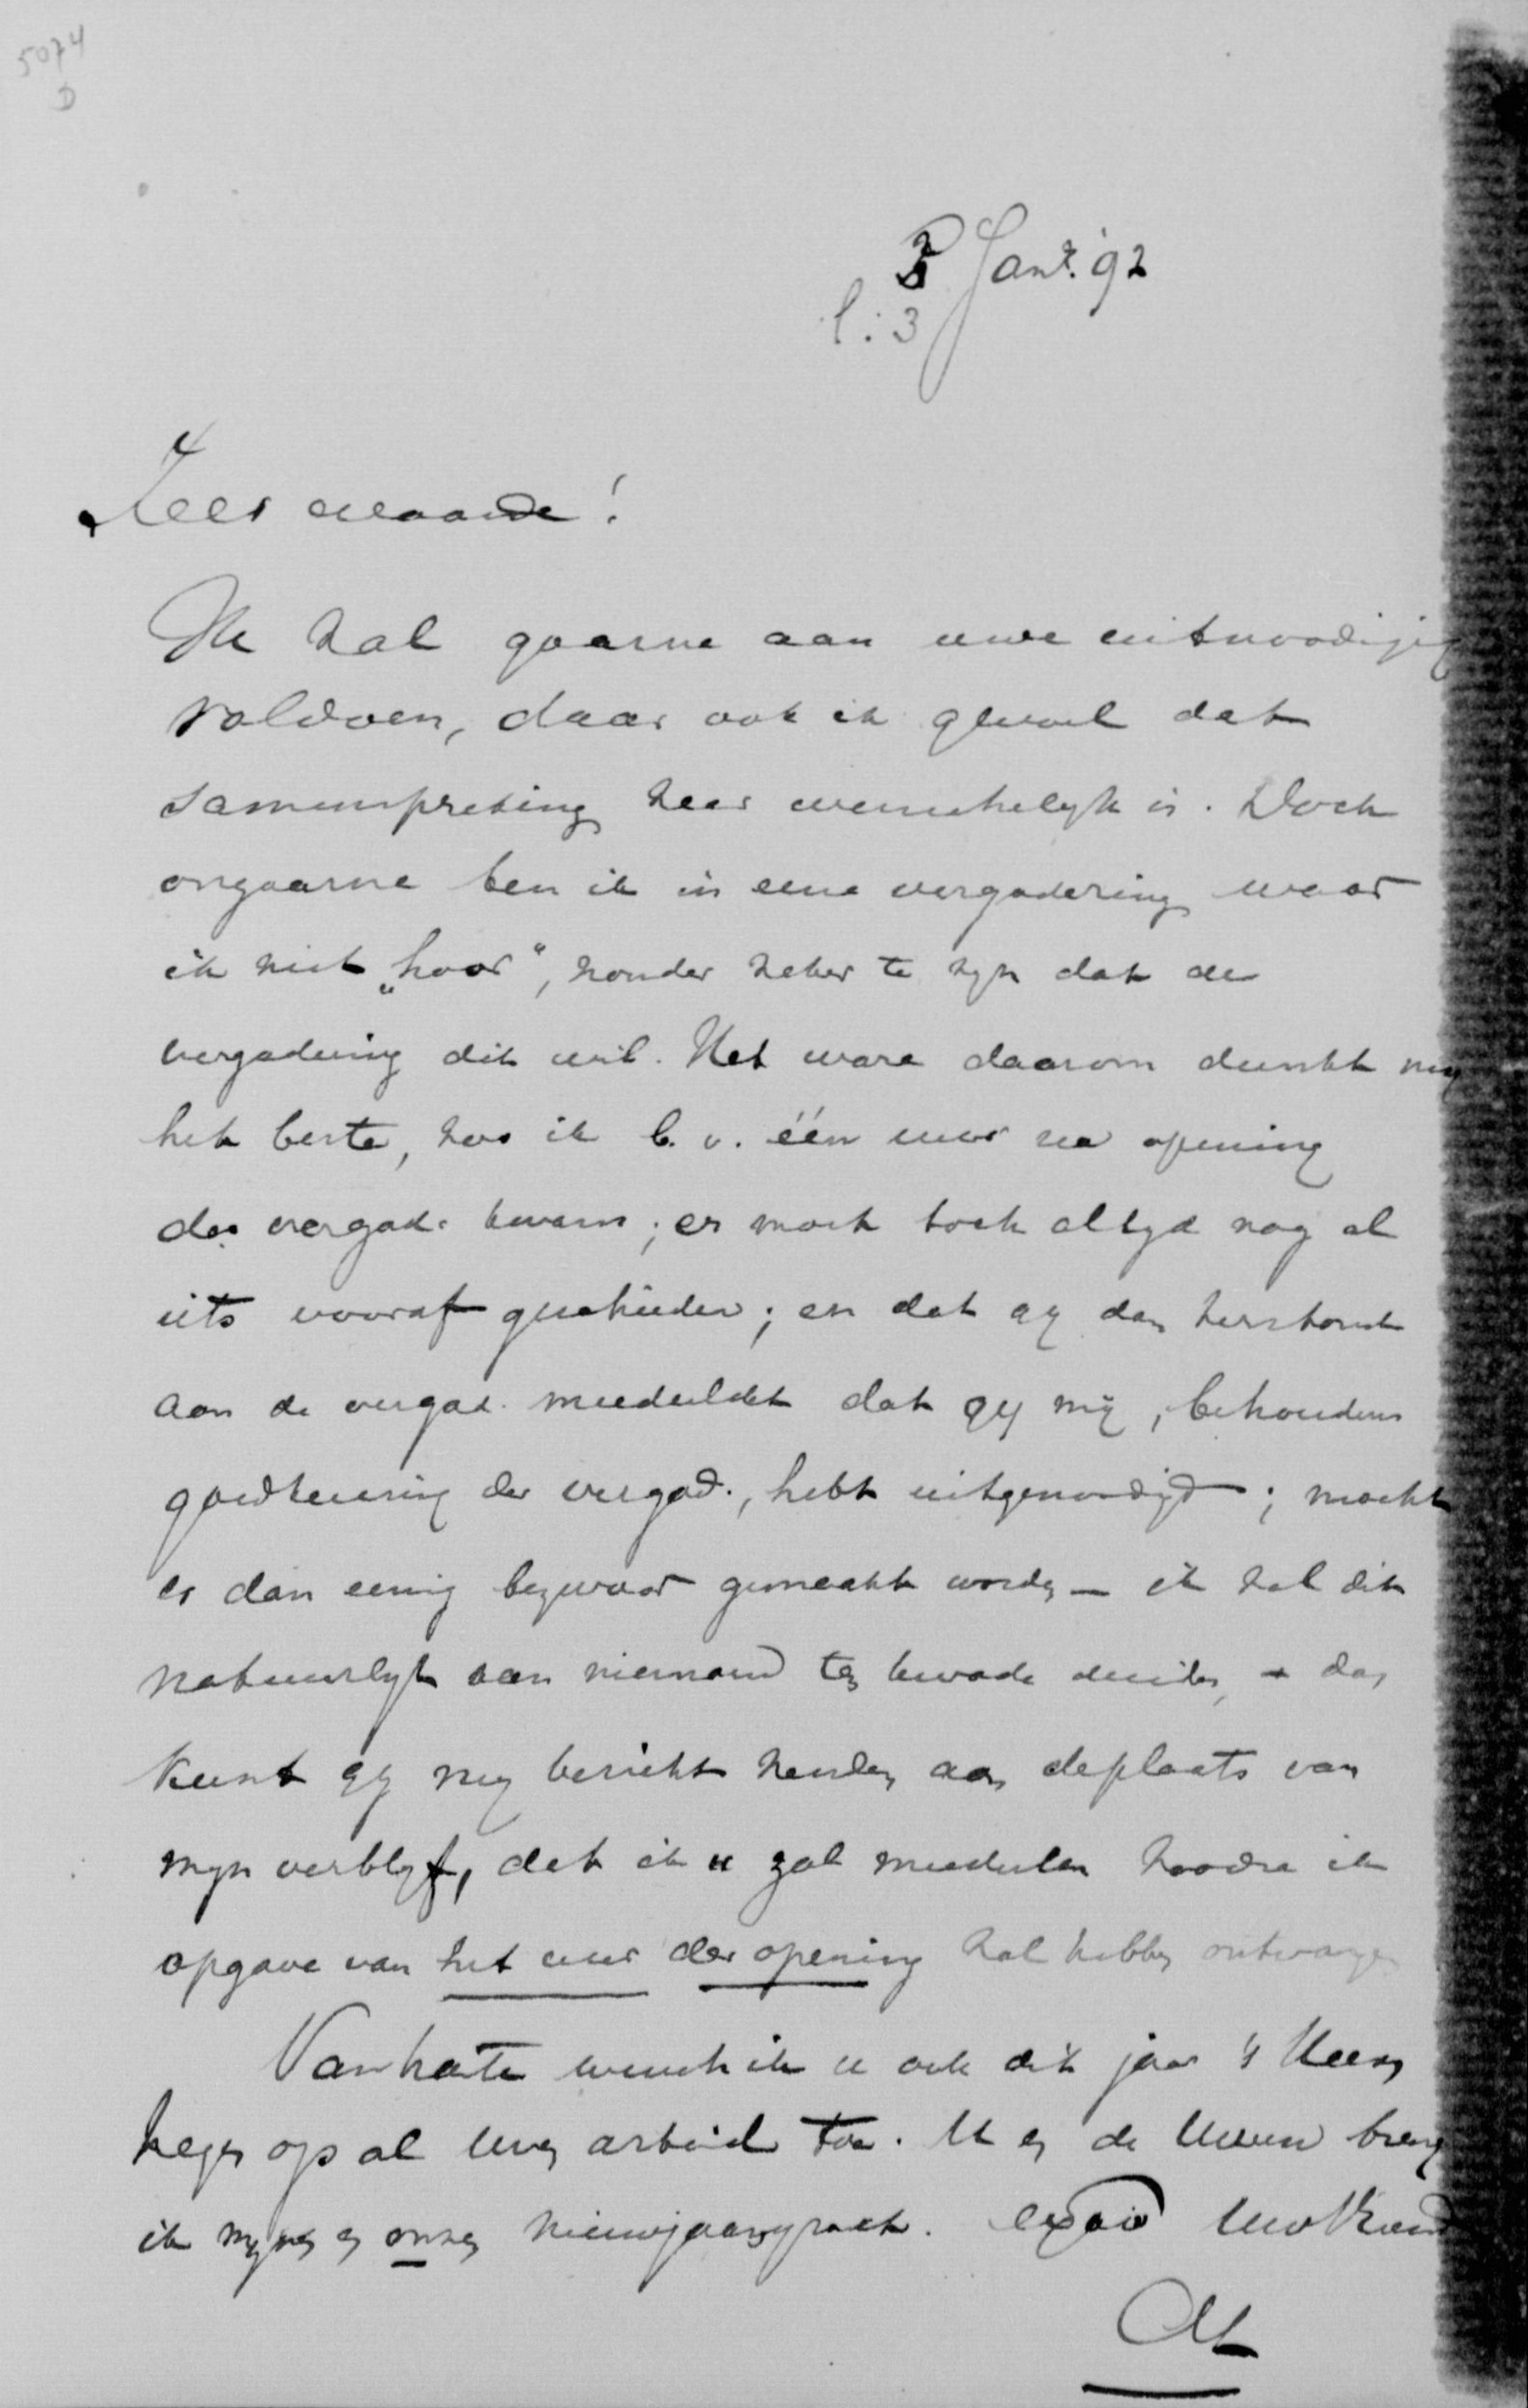 5074
D
3 Jan. '92
l: 3
Zeer waarde!
Ik zal gaarne aan uwe uitnoodiging
voldoen, daar ook ik gevoel dat
samenspreking zeer wenschelyk is. Doch
ongaarne ben ik in eene vergadering waar
ik niet „hoor", zonder zeker te zyn dat de
vergadering dit wil. Het ware daarom dunkt my
het beste, zoo ik b.v. één uur na opening
der vergad. kwam; er moet toch altyd nog al
iets vooraf geschieden; en dat gy dan terstond
aan de vergad. meedeeldet dat gy mij, behoudens
goedkeuring der vergad., hebt uitgenoodigd; mocht
er dan eenig bezwaar gemaakt worden — ik zal dit
natuurlyk aan niemand ten kwade duiden, — dan
kunt gy my bericht zenden aan de plaats van
myn verblyf, dat ik u zal meedeelen zoodra ik
opgave van het uur der opening zal hebben ontvangen
Van harte wensch ik u ook dit jaar 's Heeren
zegen op al uwen arbeid toe. U en de Uwen breng
ik mynen en onzen nieuwjaarsgroet. Uw